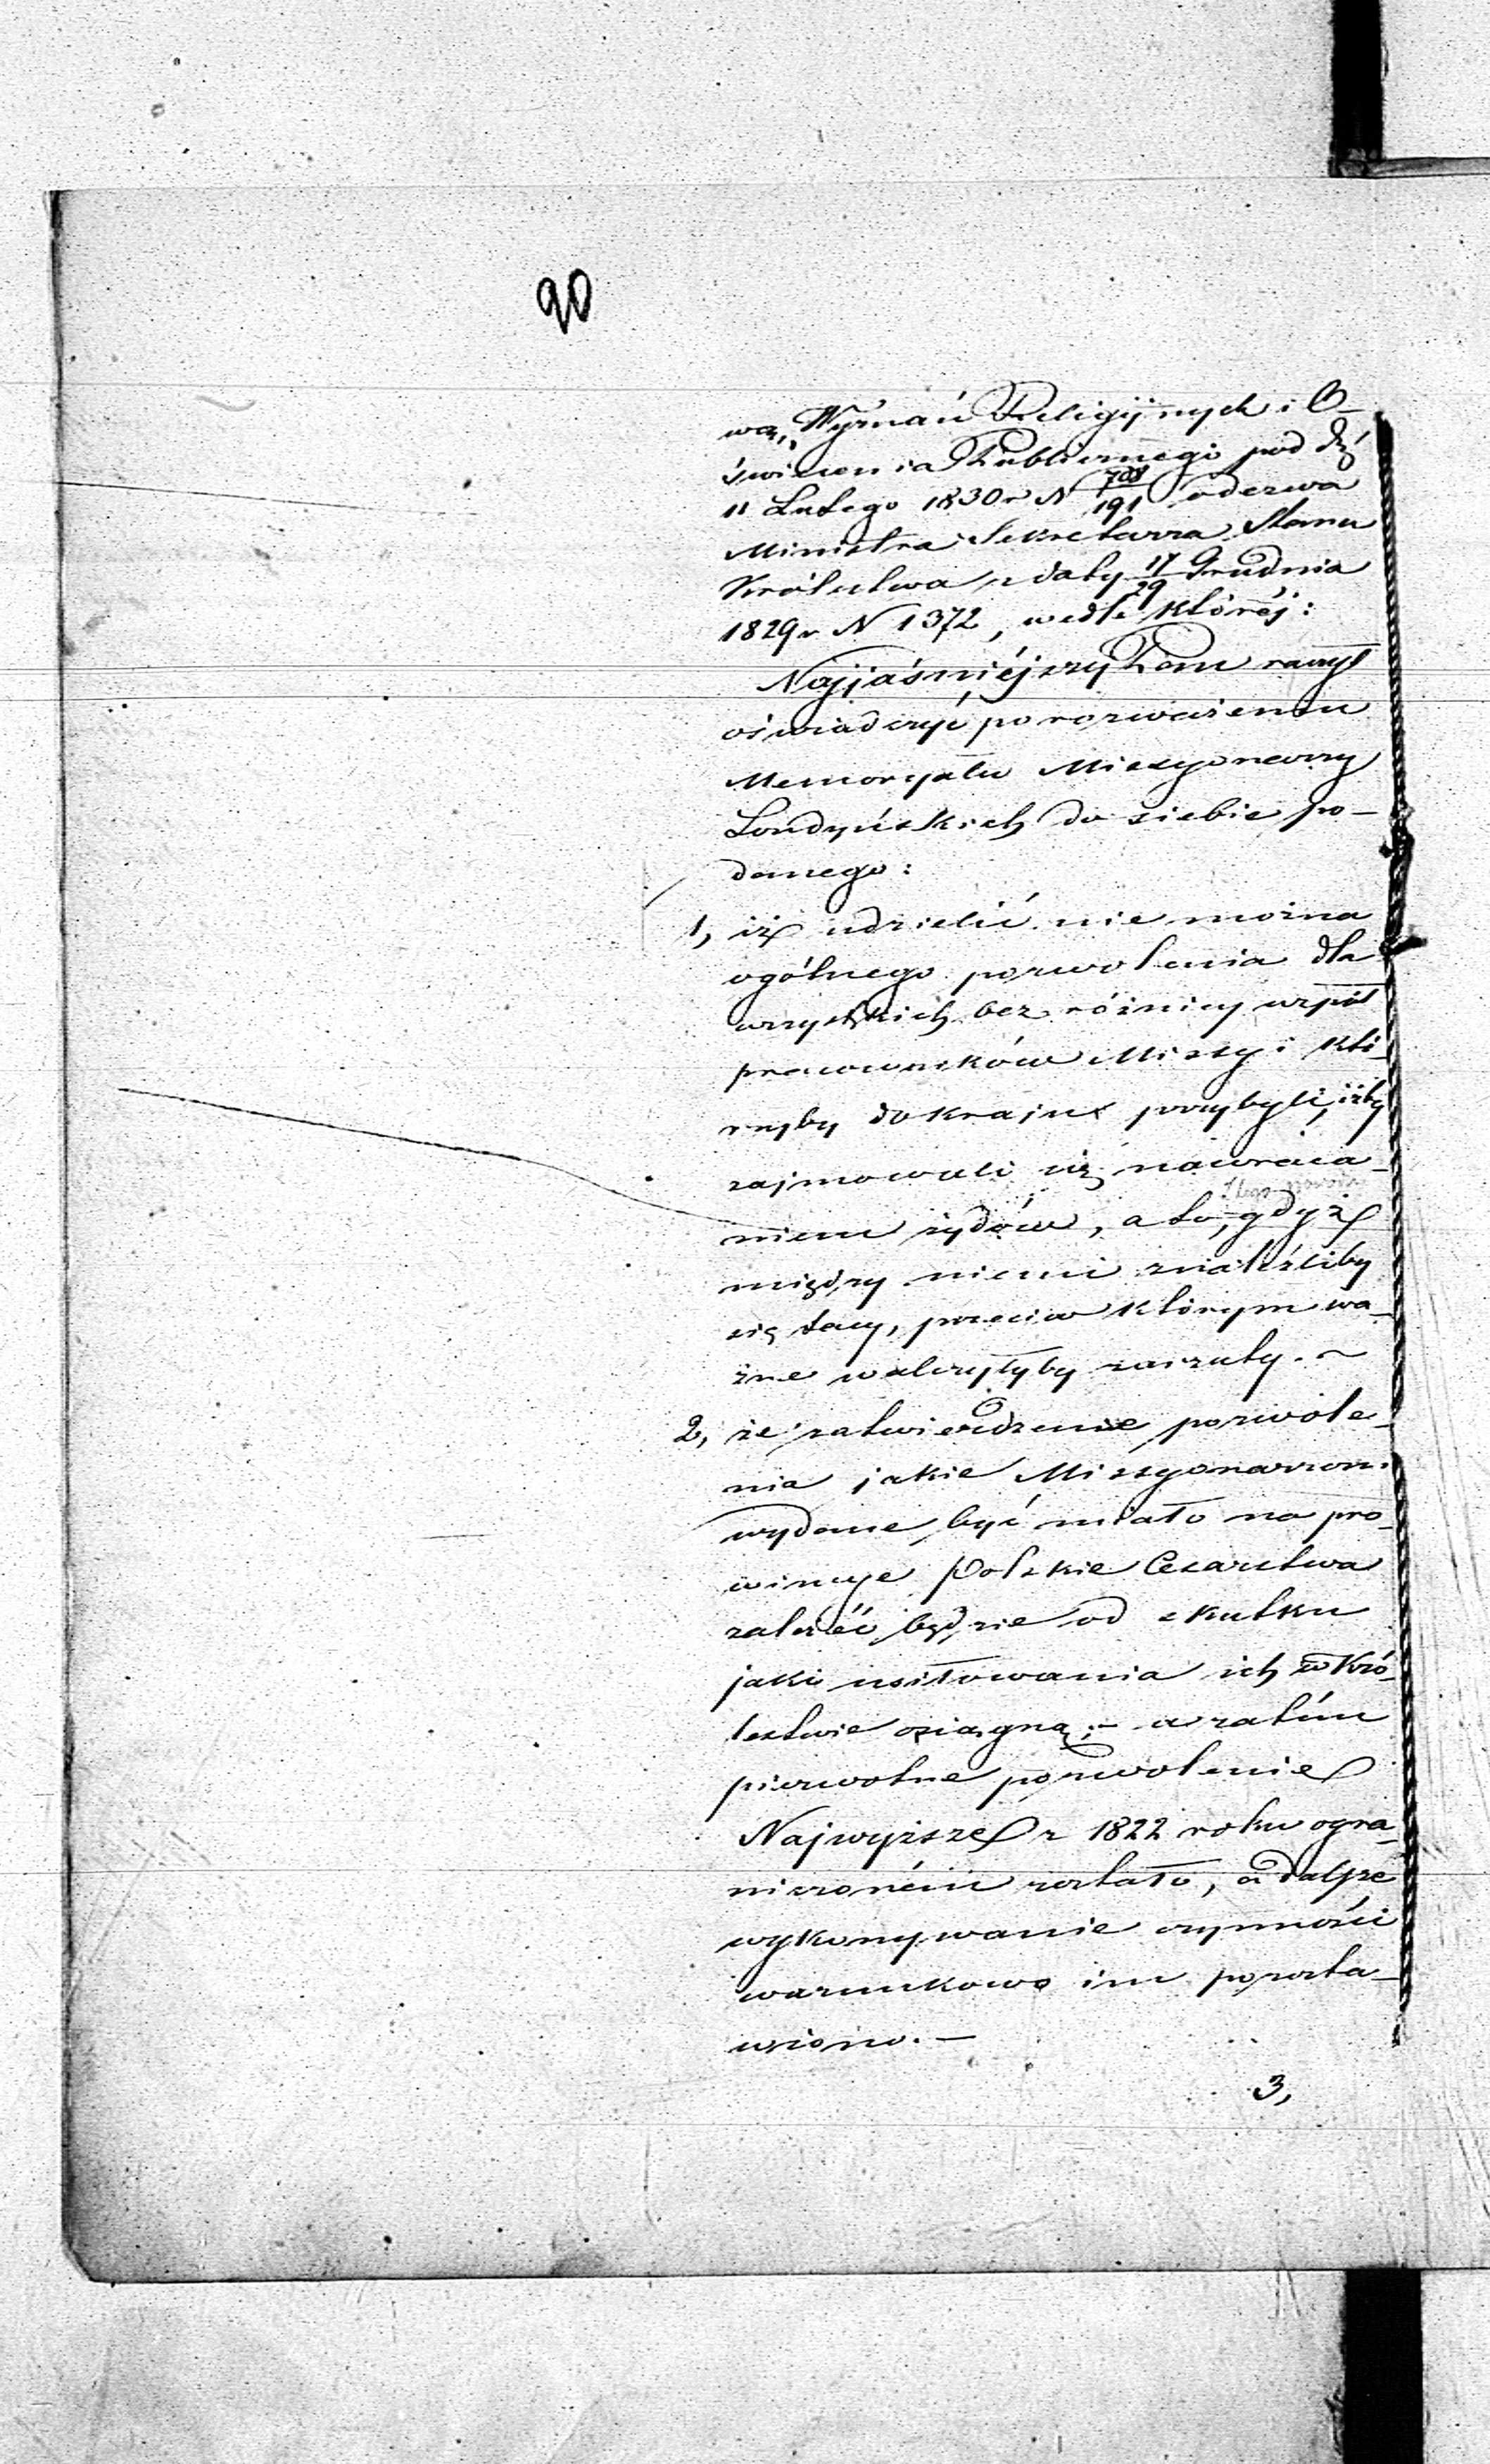 90
wą, Wyznań Religijnych i O-
świecenia Publicznego pod dź
11 Lutego 1830 r N 708/191 odezwa
Ministra Sekretarza Stanu
Królestwa z daty 17/29 Grudnia
1829 r N 1372, wedle któréj:
Najjaśniéjszy Pan raczył
oświadczyć, po rozważeniu
Memoryału Missyonarzy
Londyńskich do siebie po-
danego:
1, iż udzielić nie można
ogólnego pozwolenia dla
wszystkich bez różnicy współ
pracowników Missyi któ-
rzyby do kraju przybyli, iżby
zajmowali się nawraca-
niem żydów, a to, gdyż
między niemi znaleźliby
się tacy, przeciw którym wa-
żne walczyłyby zarzuty. ~
2, że zatwierdzenie pozwole-
nia jakie Missyonarzom
wydane być miało na pro-
wincye Polskie Cesarstwa
zależéć będzie od skutku
jaki usiłowania ich w Kró-
lestwie osiągną; - a zatém
pierwotne pozwolenie
Najwyższe z 1822 roku ogra-
niczoném zostało, a dalsze
wykonywanie czynności
warunkowo im pozosta-
wiono. —
3,